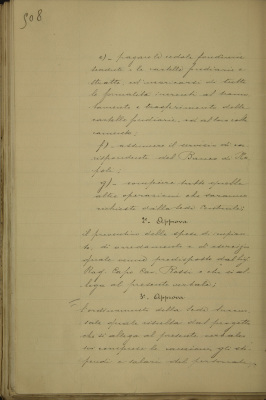 508
e) - pagare le cedole fondiarie
scadute e le cartelle fondiarie e-
stratte, ed incaricarsi di tutte
le formalità inerenti al tramu-
tamento e trasferimento delle
cartelle fondiarie, ed al loro collo-
camento;
f) - adempiere il servizio di cor-
rispondente del Banco di Na-
poli;
g) - compiere tutte quelle
altre operazioni che saranno
richieste dalla Sede Centrale;
2° - Approva
il preventivo delle spese di impian-
to, di arredamento e di esercizio
quale venne predisposto dal
Rag. Capo Cav. Rossi e che si al-
lega al presente verbale;
3° - Approva
l'ordinamento della Sede
quale risulta dal progetto
che si allega al presente verbale
ivi comprese le mansioni, gli sti-
pendi e salari del personale,